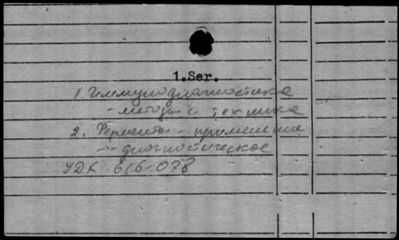 1.Ser.
1. Иммунодиагностика
- методы и техника
2. Ферменты - применение
- диагностическое
УДК 616-078